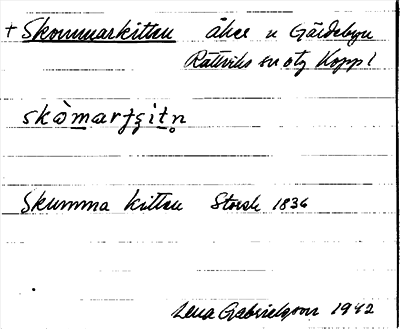 + Skommarkitten åker n Gärdebyn
Rättviks sn otg Kopp l
skòmarʈʂitn̥
Skumma kitten Storsk 1836
Lena Gabrielsson 1942